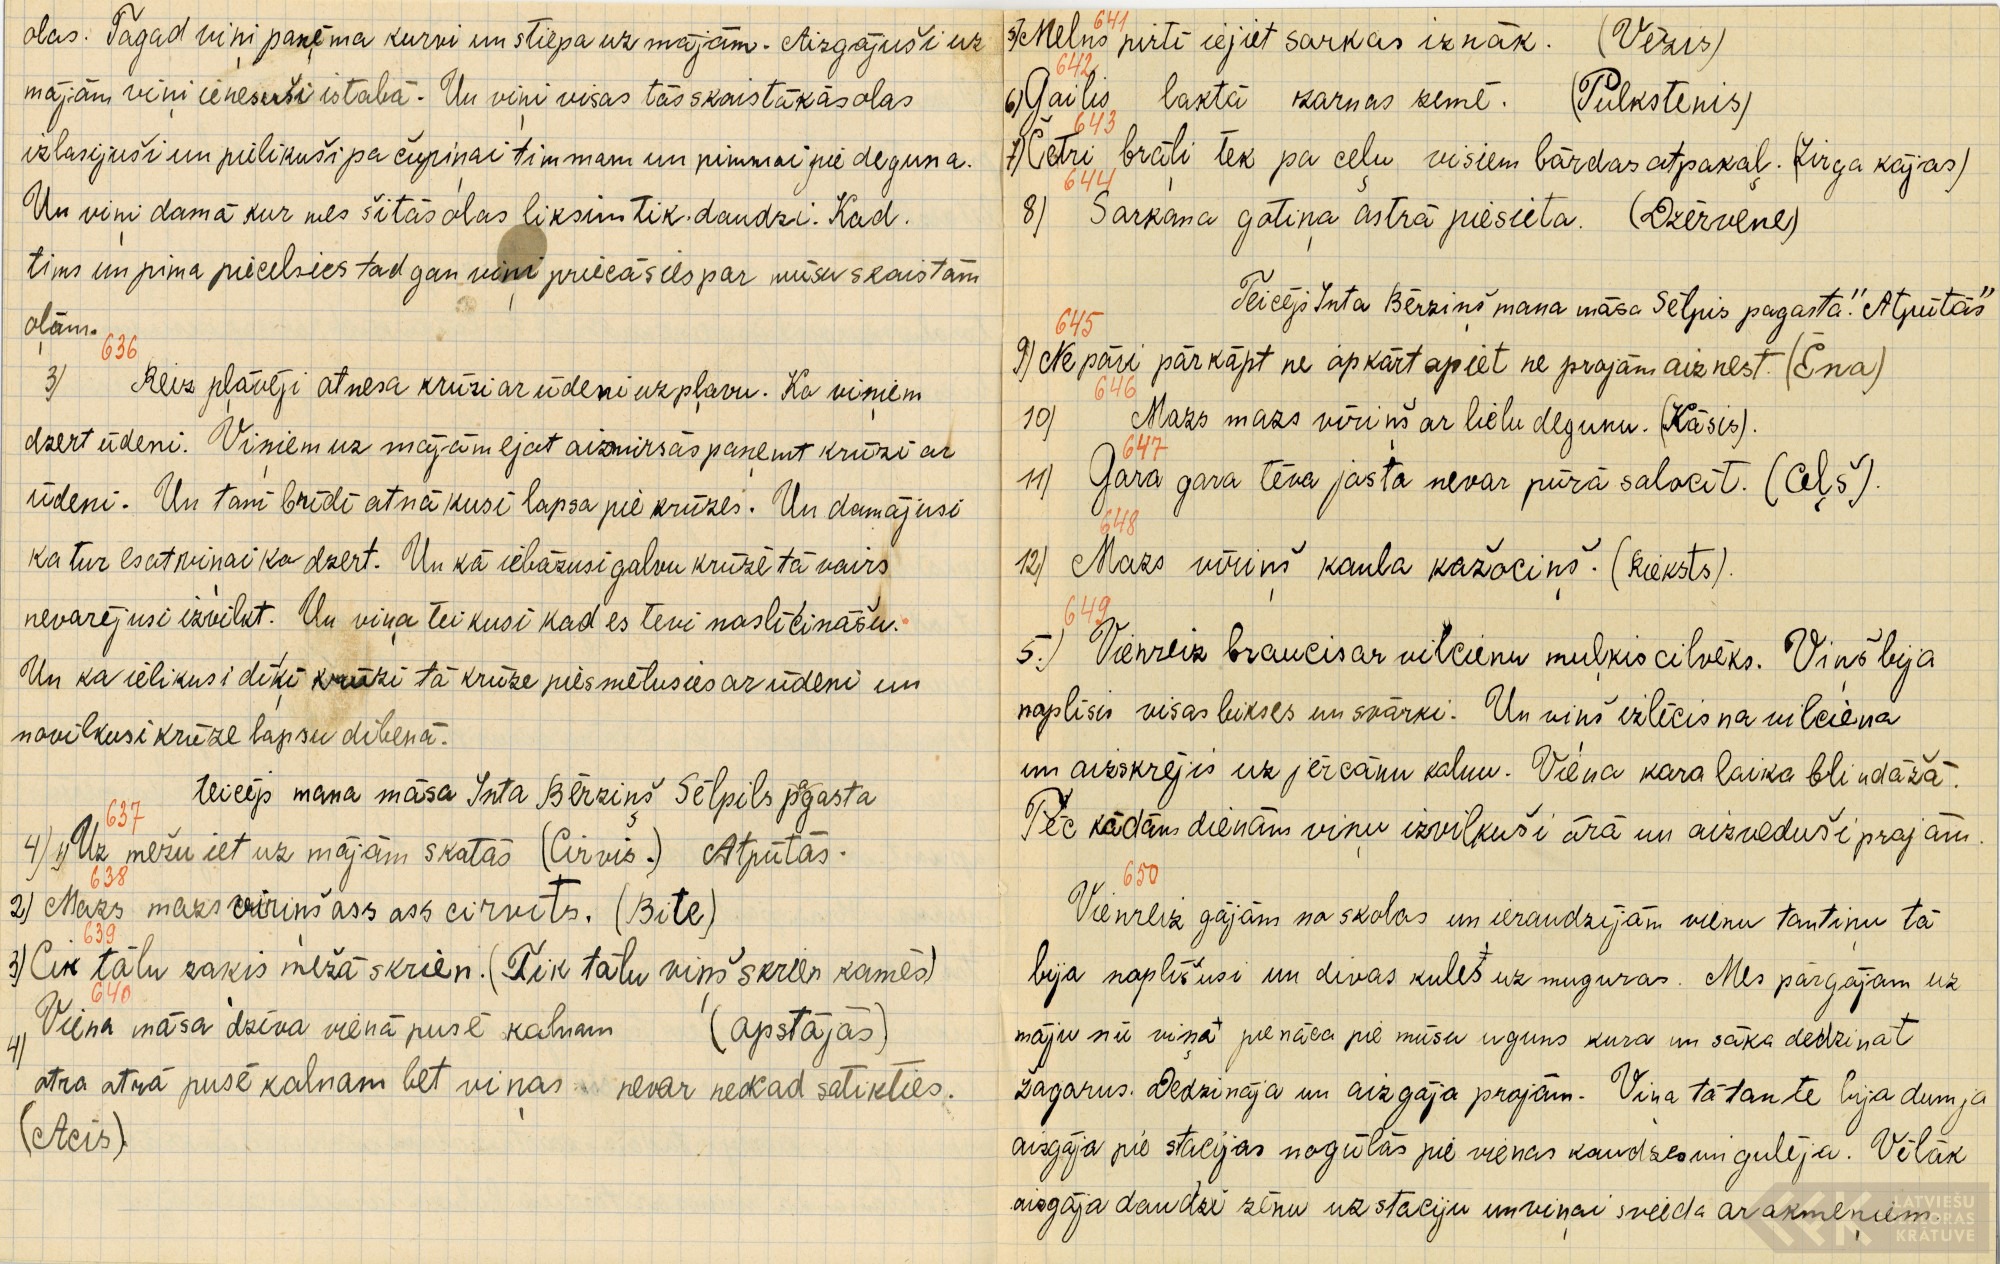 olas. Tagad viņi paņēma kurvi un stiepa uz mājām. Aizgājuši uz
mājām viņi ienesuši istabā. Un viņi visas tās skaistākās olas
izlasijuši un pielikuši pa čupiņai timmam un pimmai pie deguna.
Un viņi damā kur mes šitās olas liksim tik daudzi. Kad.
tims un pima piecelsies tad gan viņi priecāsies par mūsu skaistām
oļām.
636
3) Reiz pļāvēji atnesa krūzi ar ūdeni uz pļavu. Ko viņiem
dzert ūdeni. Viņiem uz mājām ejot aizmirsās paņemt krūzi ar
ūdeni. Un tanī brīdī atnākusi lapsa pie krūzes. Un damājusi
ka tur esat viņai ko dzert. Un kā iebāzusi galvu krūzē tā vairs
nevarējusi izvilkt. Un viņa teikusi kad es tevi noslīcināšu.
Un ka ielikusi dīķī krūzi tā krūze piesmēlusies ar ūdeni un
novilkusi krūze lapsu dibenā.
teicējs mana māsa Inta Bērziņš Sēlpils pagasta
637
4) 1) Uz mežu iet uz mājām skatās (Cirvis.) Atpūtās.
638
2) Mazs mazs vīriņš ass ass cirvīts. (Bite)
639
3) Cik tālu zakis mežā skrien. (Tik tālu viņš skrien kamēs)
640
4) Viena māsa dzīva vienā pusē kalnam (apstājās)
otra otrā pusē kalnam bet viņas nevar neckad satikties.
(Acis).
641
5) Melns pirtī iejiet sarkas iznāk. (Vēzis)
642
6) Gailis laktā zarnas zemē. (Pulkstenis)
643
7) Četri brāļi tek pa ceļu visiem bārdas atpakaļ. (Zirga kājas)
644
8) Sarkana gotiņa astrā piesieta. (Dzērvene)
Teicējs Inta Bērziņš mana māsa Sēlpis pagastā "Atpūtās"
645
9) Ne pāri pārkāpt ne apkārt apiet ne projām aiznest. (Ēna)
646
10) Mazs mazs vīriņš ar lielu degunu. (Kāsis).
647
11) Gara gara tēva josta nevar pūrā salocīt. (Ceļš).
648
12) Mazs vīriņš kaula kažociņš. (Rieksts).
649
5.) Vienreiz braucis ar vilcienu muļķis cilvēks. Viņš bija
noplīsis visas bikses un svārki. Un viņš izlīcis na vilciena
un aizskrējis uz jērcānu kalnu. Viena kara laika blindāžā.
Pēc kādām dienām viņu izvilkuši ārā un aizveduši projām.
650
Vienreiz gājām no skolas un ieraudzījām vienu tantiņu tā
bija noplīsusi un divas kules uz muguras. Mes pārgājam uz
māju nū viņa pienāca pie mūsu uguns kura un sāka dedzinat
žagarus. Dedzināja un aizgāja projām. Viņa tā tante bija dumja
aizgāja pie stacijas nogūlās pie vienas kaudzes un gulēja. Vēlāk
aizgāja daudzi zēnu uz staciju un viņai svieda ar akmeņiem
LATVIEŠU
FOLKLORAS
KRĀTUVE